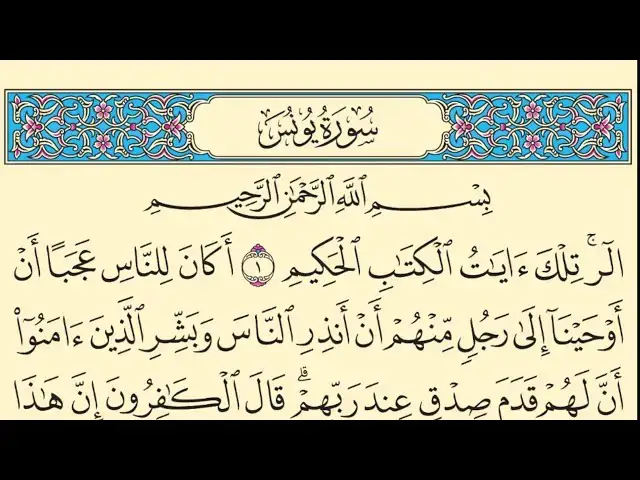 سُورَةُ يُونُسَ
بِسْمِ ٱللَّهِ ٱلرَّحْمَٰنِ ٱلرَّحِيمِ
الٓرۚ تِلْكَ ءَايَٰتُ ٱلْكِتَٰبِ ٱلْحَكِيمِ ١ أَكَانَ لِلنَّاسِ عَجَبًا أَنْ
أَوْحَيْنَآ إِلَىٰ رَجُلٍ مِّنْهُمْ أَنْ أَنذِرِ ٱلنَّاسَ وَبَشِّرِ ٱلَّذِينَ ءَامَنُوٓا۟
أَنَّ لَهُمْ قَدَمَ صِدْقٍ عِندَ رَبِّهِمْۗ قَالَ ٱلْكَٰفِرُونَ إِنَّ هَٰذَا